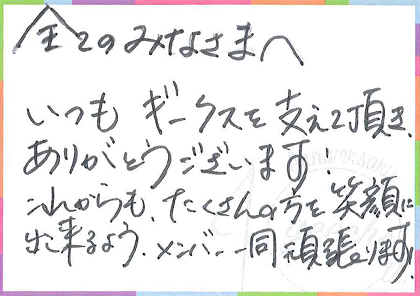 全てのみなさまへ
いつも ギークスを支えて頂き、
ありがとうございます。
これからも、たくさんの方を笑顔に
出来るよう、メンバー一同頑張ります!